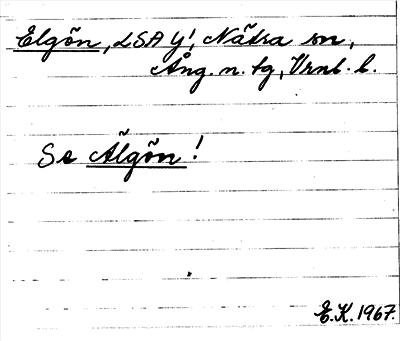 Elgõn, LSA Y!, Nätra sn,
Ång. n. tg, Vrnl. l.
Se Älgõn!
E.K. 1967.